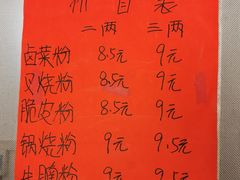 价目表
二两 三两
卤菜粉 8.5元 9元
叉烧粉 8.5元 9元
脆皮粉 8.5元 9元
锅烧粉 9元 9.5元
牛腩粉 9元 9.5元